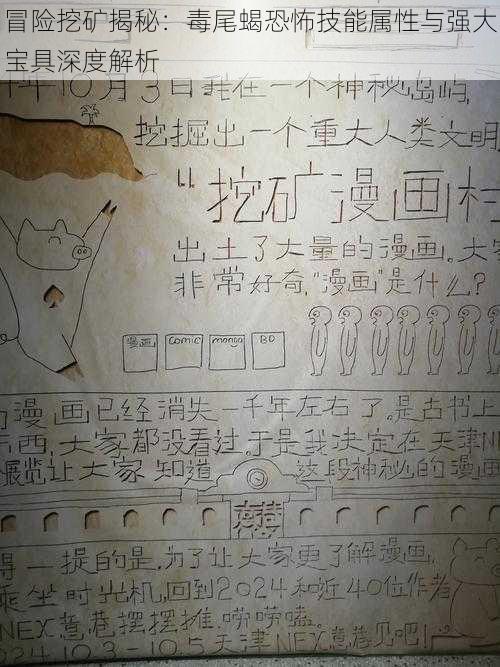 冒险挖矿揭秘：毒尾蝎恐怖技能属性与强大
宝具深度解析
年10月3日我在一个神秘岛屿,
挖掘出一个重大人类文明
“挖矿漫画村
出土了大量的漫画。大家
非常好奇,“漫画”是什么?
漫画 comic manga BD
漫画已经消失一千年左右了。是古书上
东西,大家都没看过。于是我决定在天津NE
展览让大家知道 这段神秘的漫画
得一提的是,为了让大家更了解漫画,
乘坐时光机,回到2024和近40位作者
NEX意巷摆摆摊,唠唠嗑。
24.10.3-10.5天津NEX意巷见吧!